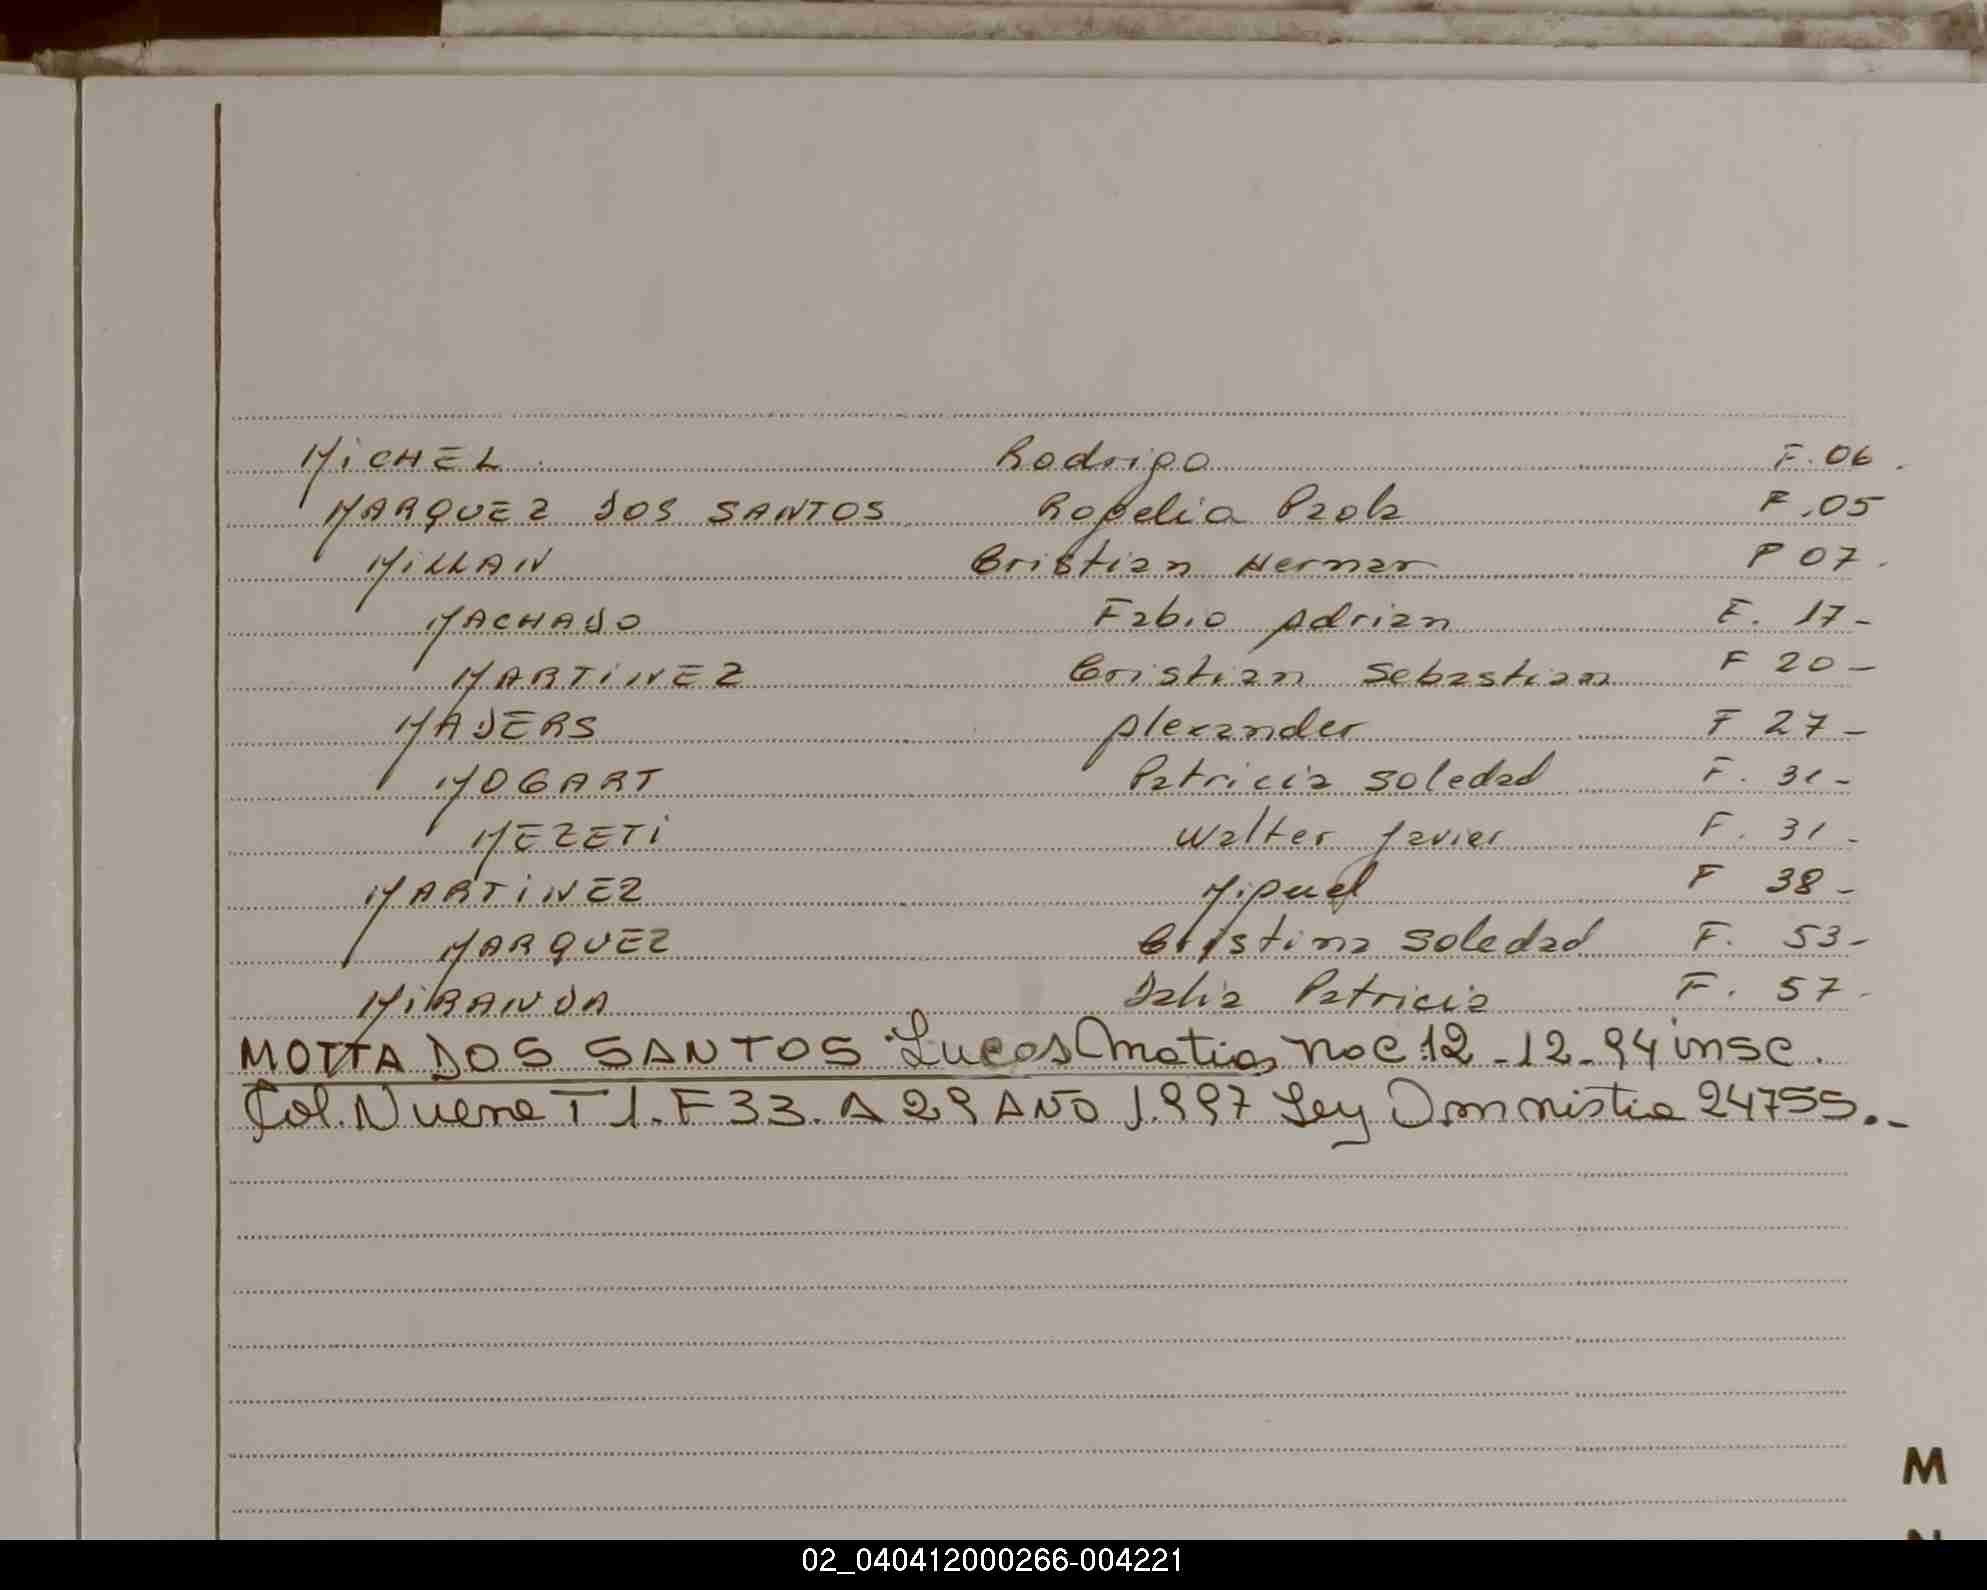 MiCHEL Rodrigo F. 06.
MARQUEZ DOS SANTOS Rogelia Paola F. 05
MiLLAN Cristian Hernan F 07.
MACHADO Fabio Adrian F. 17-
MARTiNEZ Cristian Sebastian F 20-
MADERS Alexander F 27-
MOGART Patricia Soledad F. 31-
MEZETi Walter Javier F. 31-
MARTiNEZ Miguel F 38-
MARQUEZ Cristina Soledad F. 53-
MiRANDA Dalia Patricia F. 57-
MOTTA DOS SANTOS Lucas Matias nac 12-12-94 insc.
Col. Nueve T 1. F 33. A 29 AÑO 1.997 Ley Amnistia 24755.-
M
N
02_040412000266-004221